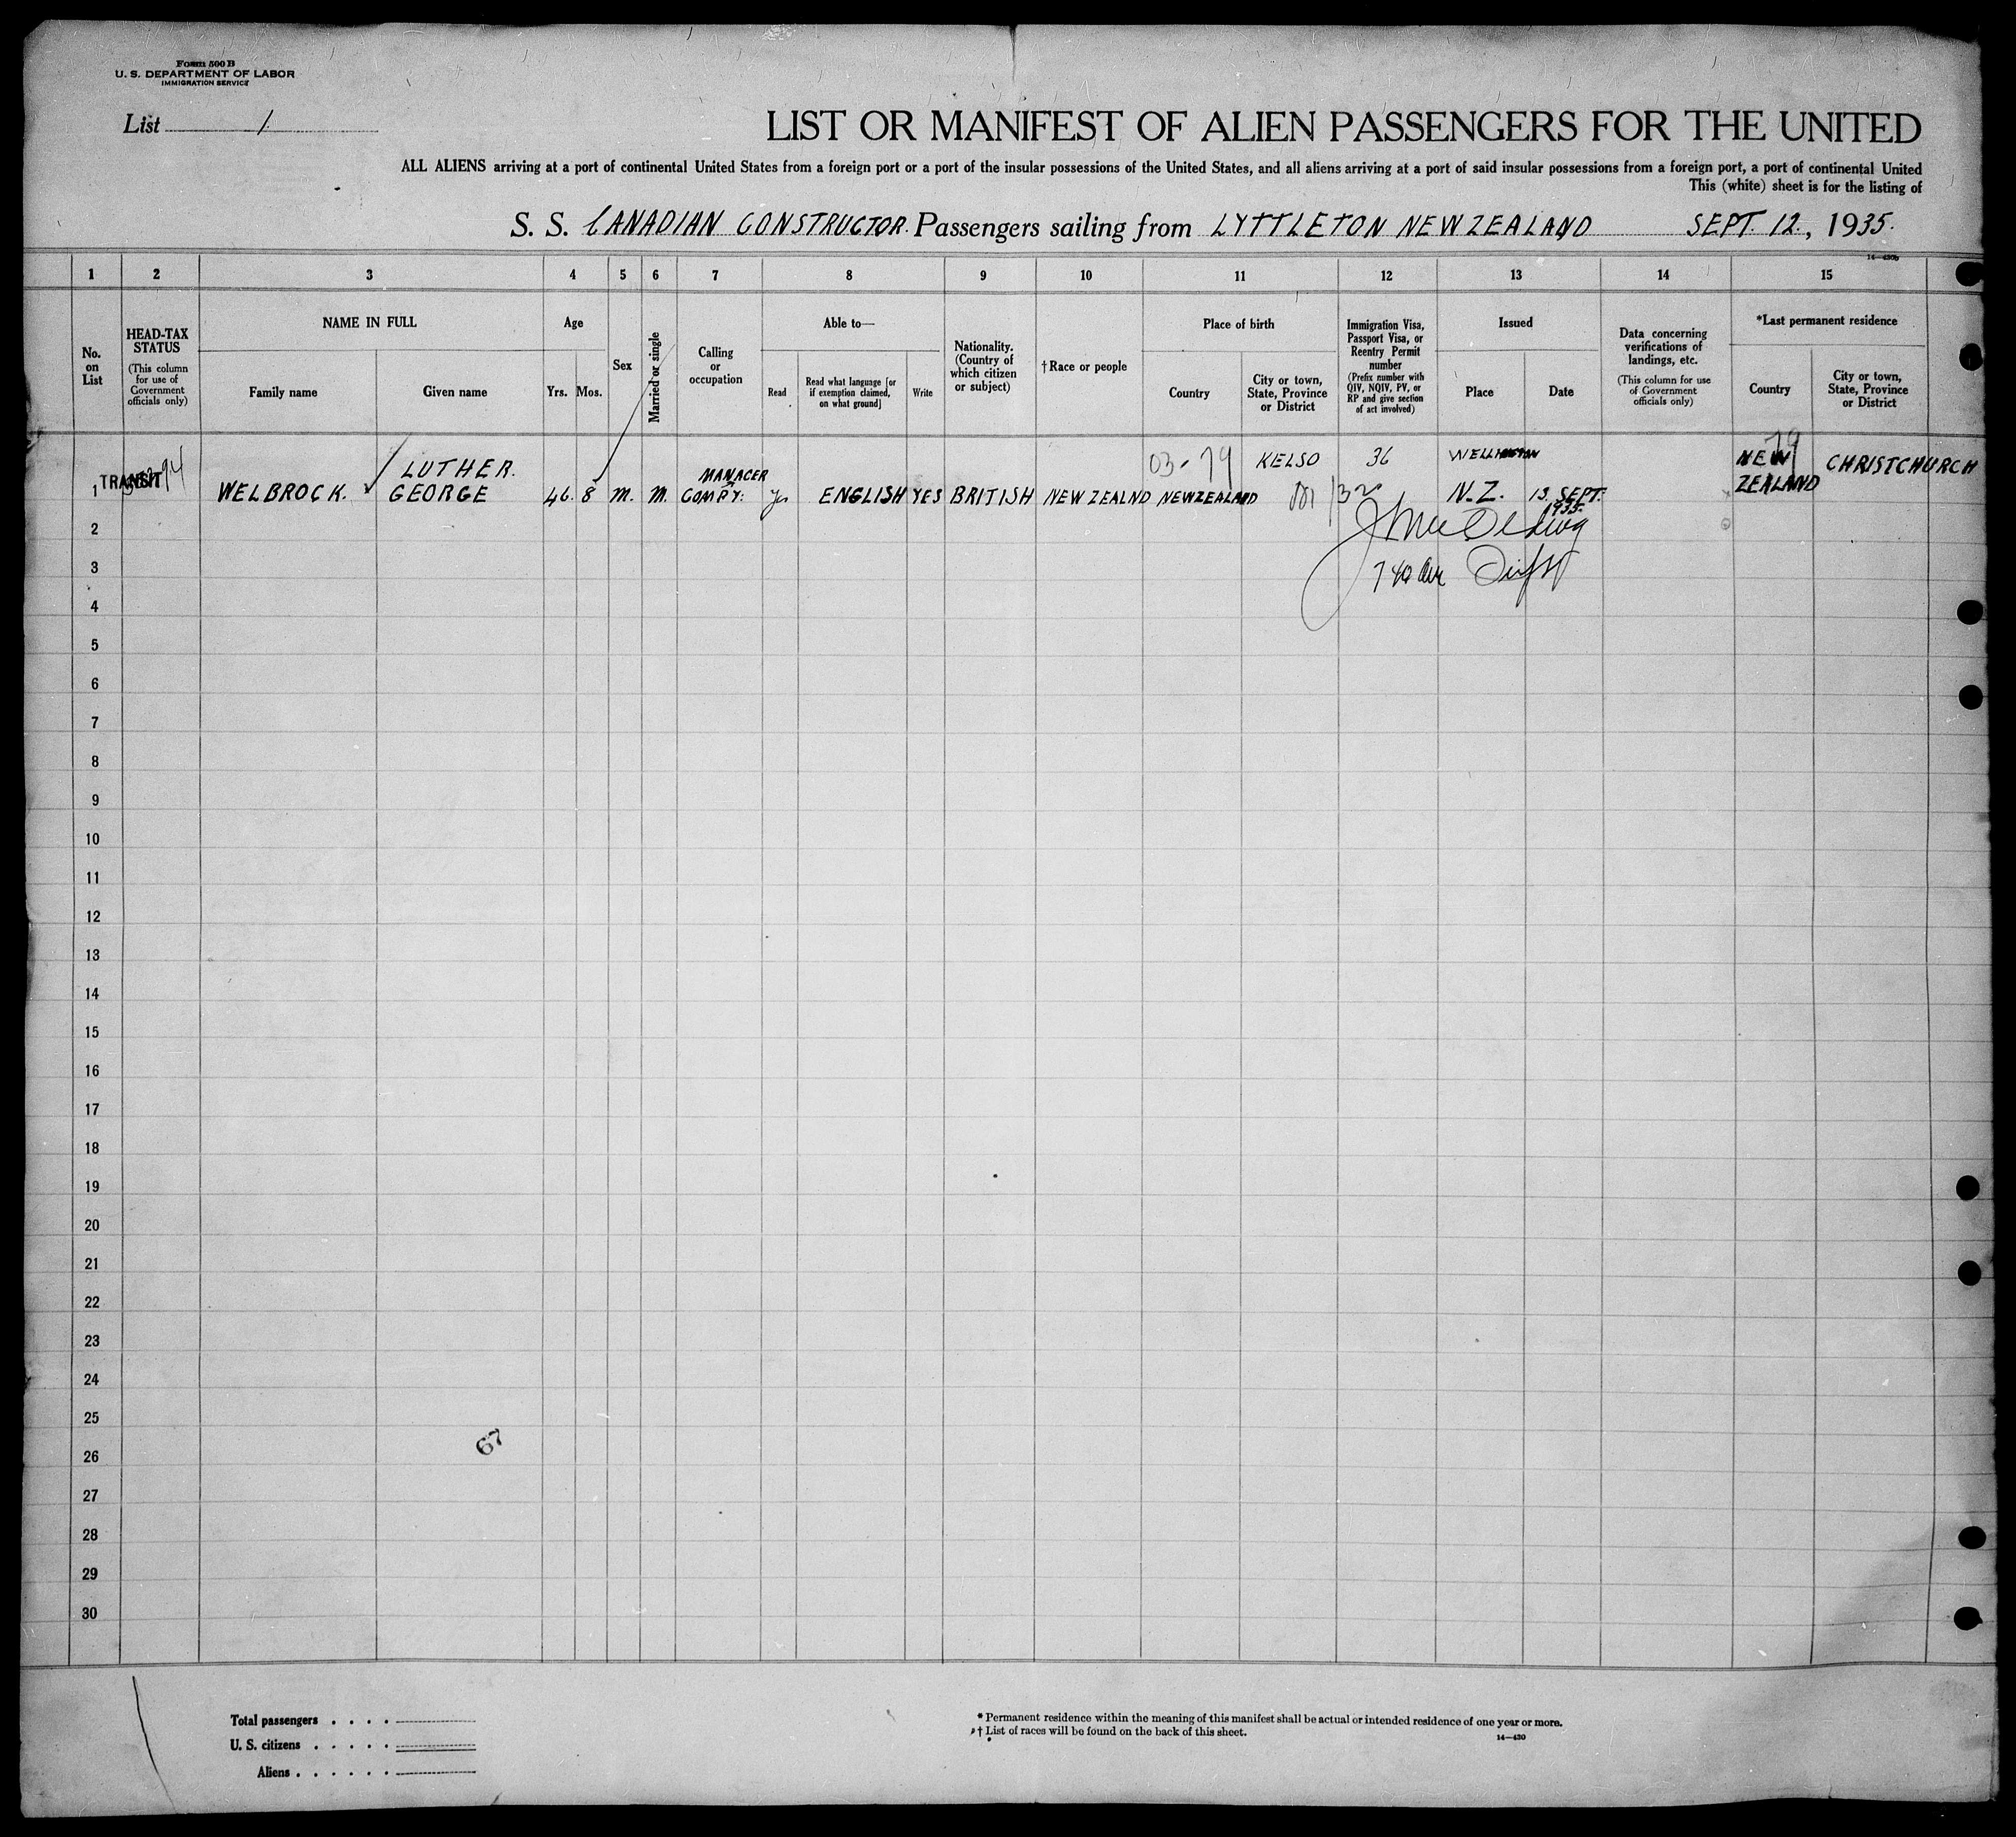 Form 500 B
U. S. DEPARTMENT OF LABOR
IMMIGRATION SERVICE
List 1
LIST OR MANIFEST OF ALIEN PASSENGERS FOR THE UNITED
ALL ALIENS arriving at a port of continental United States from a foreign port or a port of the insular possessions of the United States, and all aliens arriving at a port of said insular possessions from a foreign port, a port of continental United
This (white) sheet is for the listing of
S. S. CANADIAN CONSTRUCTOR. Passengers sailing from LYTTLETON NEW ZEALAND SEPT. 12., 1935.
14—430b
1 2 3 4 5 6 7 8 9 10 11 12 13 14 15
No. on List
HEAD-TAX STATUS
(This column for use of Government officials only)
NAME IN FULL
Family name
Given name
Age
Yrs. Mos.
Sex
Married or single
Calling or occupation
Able to—
Read
Read what language [or if exemption claimed, on what ground]
Write
Nationality. (Country of which citizen or subject)
†Race or people
Place of birth
Country
City or town, State, Province or District
Immigration Visa, Passport Visa, or Reentry Permit number
(Prefix number with QIV, NQIV, PV, or RP and give section of act involved)
Issued
Place
Date
Data concerning verifications of landings, etc.
(This column for use of Government officials only)
*Last permanent residence
Country
City or town, State, Province or District
LUTHER. MANAGER 03-79 KELSO 36 WELLINGTON NEW 79 CHRISTCHURCH
1 TRANSIT WELBROCK. GEORGE 46. 8 M. M. COMPY. ys ENGLISH YES BRITISH NEW ZEALND NEW ZEALAND N.Z. 13. SEPT. ZEALAND
1935.
2
3
4
5
6
7
8
9
10
11
12
13
14
15
16
17
18
19
20
21
22
23
24
25
26
27
28
29
30
67
Total passengers . . . .
U. S. citizens . . . . .
Aliens . . . . . .
* Permanent residence within the meaning of this manifest shall be actual or intended residence of one year or more.
† List of races will be found on the back of this sheet.
14—430